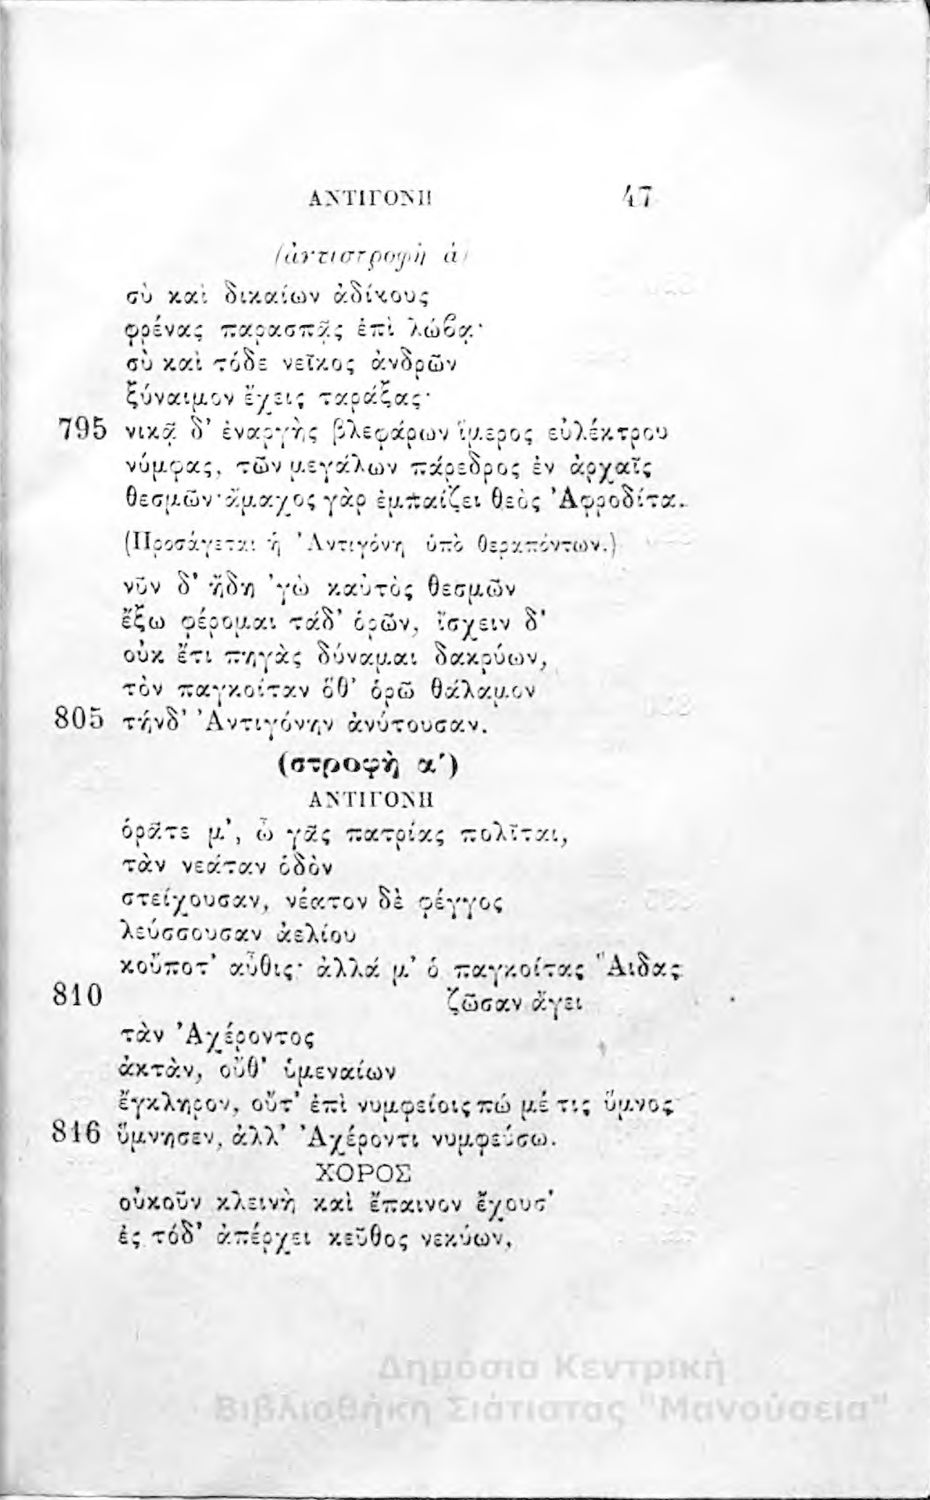 ΑΝΤΙΓΟΝΗ 47
(ἀντιστροφὴ ά)
σὺ καὶ δικαίων ἀδίκους
φρένας παρασπᾷς ἐπὶ λώβᾳ·
σὺ καὶ τόδε νεῖκος ἀνδρῶν
ξύναιμον ἔχεις ταράξας·
795 νικᾷ δ' ἐναργὴς βλεφάρων ἵμερος εὐλέκτρου
νύμφας, τῶν μεγάλων πάρεδρος ἐν ἀρχαῖς
θεσμῶν· ἄμαχος γὰρ ἐμπαίζει θεὸς Ἀφροδίτα.
(Προσάγεται ἡ Ἀντιγόνη ὑπὸ θεραπόντων.)
νῦν δ' ἤδη 'γὼ καὐτὸς θεσμῶν
ἔξω φέρομαι τάδ' ὁρῶν, ἴσχειν δ'
οὐκ ἔτι πηγὰς δύναμαι δακρύων,
τὸν παγκοίταν ὅθ' ὁρῶ θάλαμον
805 τήνδ' Ἀντιγόνην ἀνύτουσαν.
(στροφὴ α')
ΑΝΤΙΓΟΝΗ
ὁρᾶτε μ', ὦ γᾶς πατρίας πολῖται,
τὰν νεάταν ὁδὸν
στείχουσαν, νέατον δὲ φέγγος
λεύσσουσαν ἀελίου
κοὔποτ' αὖθις· ἀλλά μ' ὁ παγκοίτας Ἅιδας
810 ζῶσαν ἄγει
τὰν Ἀχέροντος
ἀκτὰν, οὔθ' ὑμεναίων
ἔγκληρον, οὔτ' ἐπὶ νυμφείοις πώ μέ τις ὕμνος
816 ὕμνησεν, ἀλλ' Ἀχέροντι νυμφεύσω.
ΧΟΡΟΣ
οὐκοῦν κλεινὴ καὶ ἔπαινον ἔχουσ'
ἐς τόδ' ἀπέρχει κεῦθος νεκύων,
Δημόσια Κεντρική
Βιβλιοθήκη Σιάτιστας "Μανούσεια"